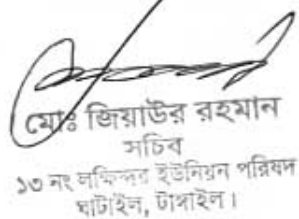 মোঃ জিয়াউর রহমান
সচিব
১৩ নং লক্ষিন্দর ইউনিয়ন পরিষদ
ঘাটাইল, টাঙ্গাইল।